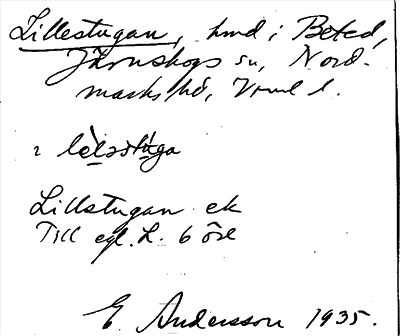 Lillestugan, hmd i Beted,
Järnskogs sn, Nord-
marks hd, Vrml l.
2 lèləstúga
Lillstugan ek
Till egl. L. 6 öre
E. Andersson 1935.